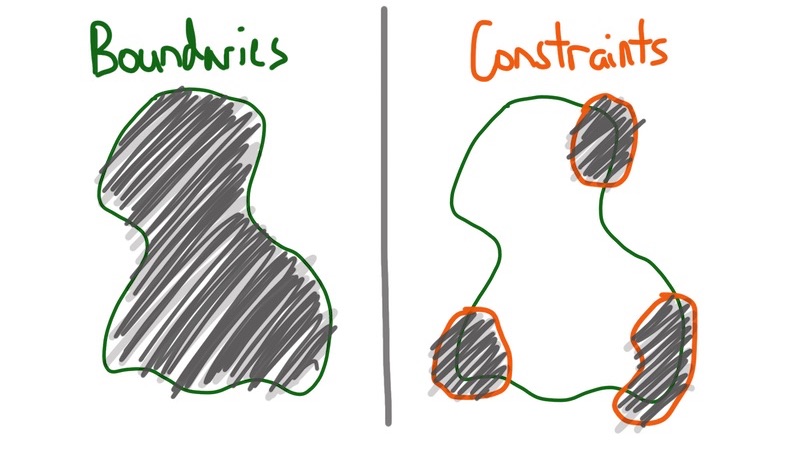 Boundaries
Constraints